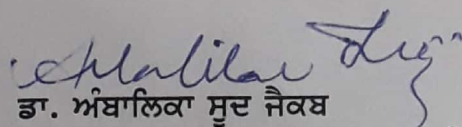 ਡਾ. ਅੰਬਾਲਿਕਾ ਸੂਦ ਜੈਕਬ